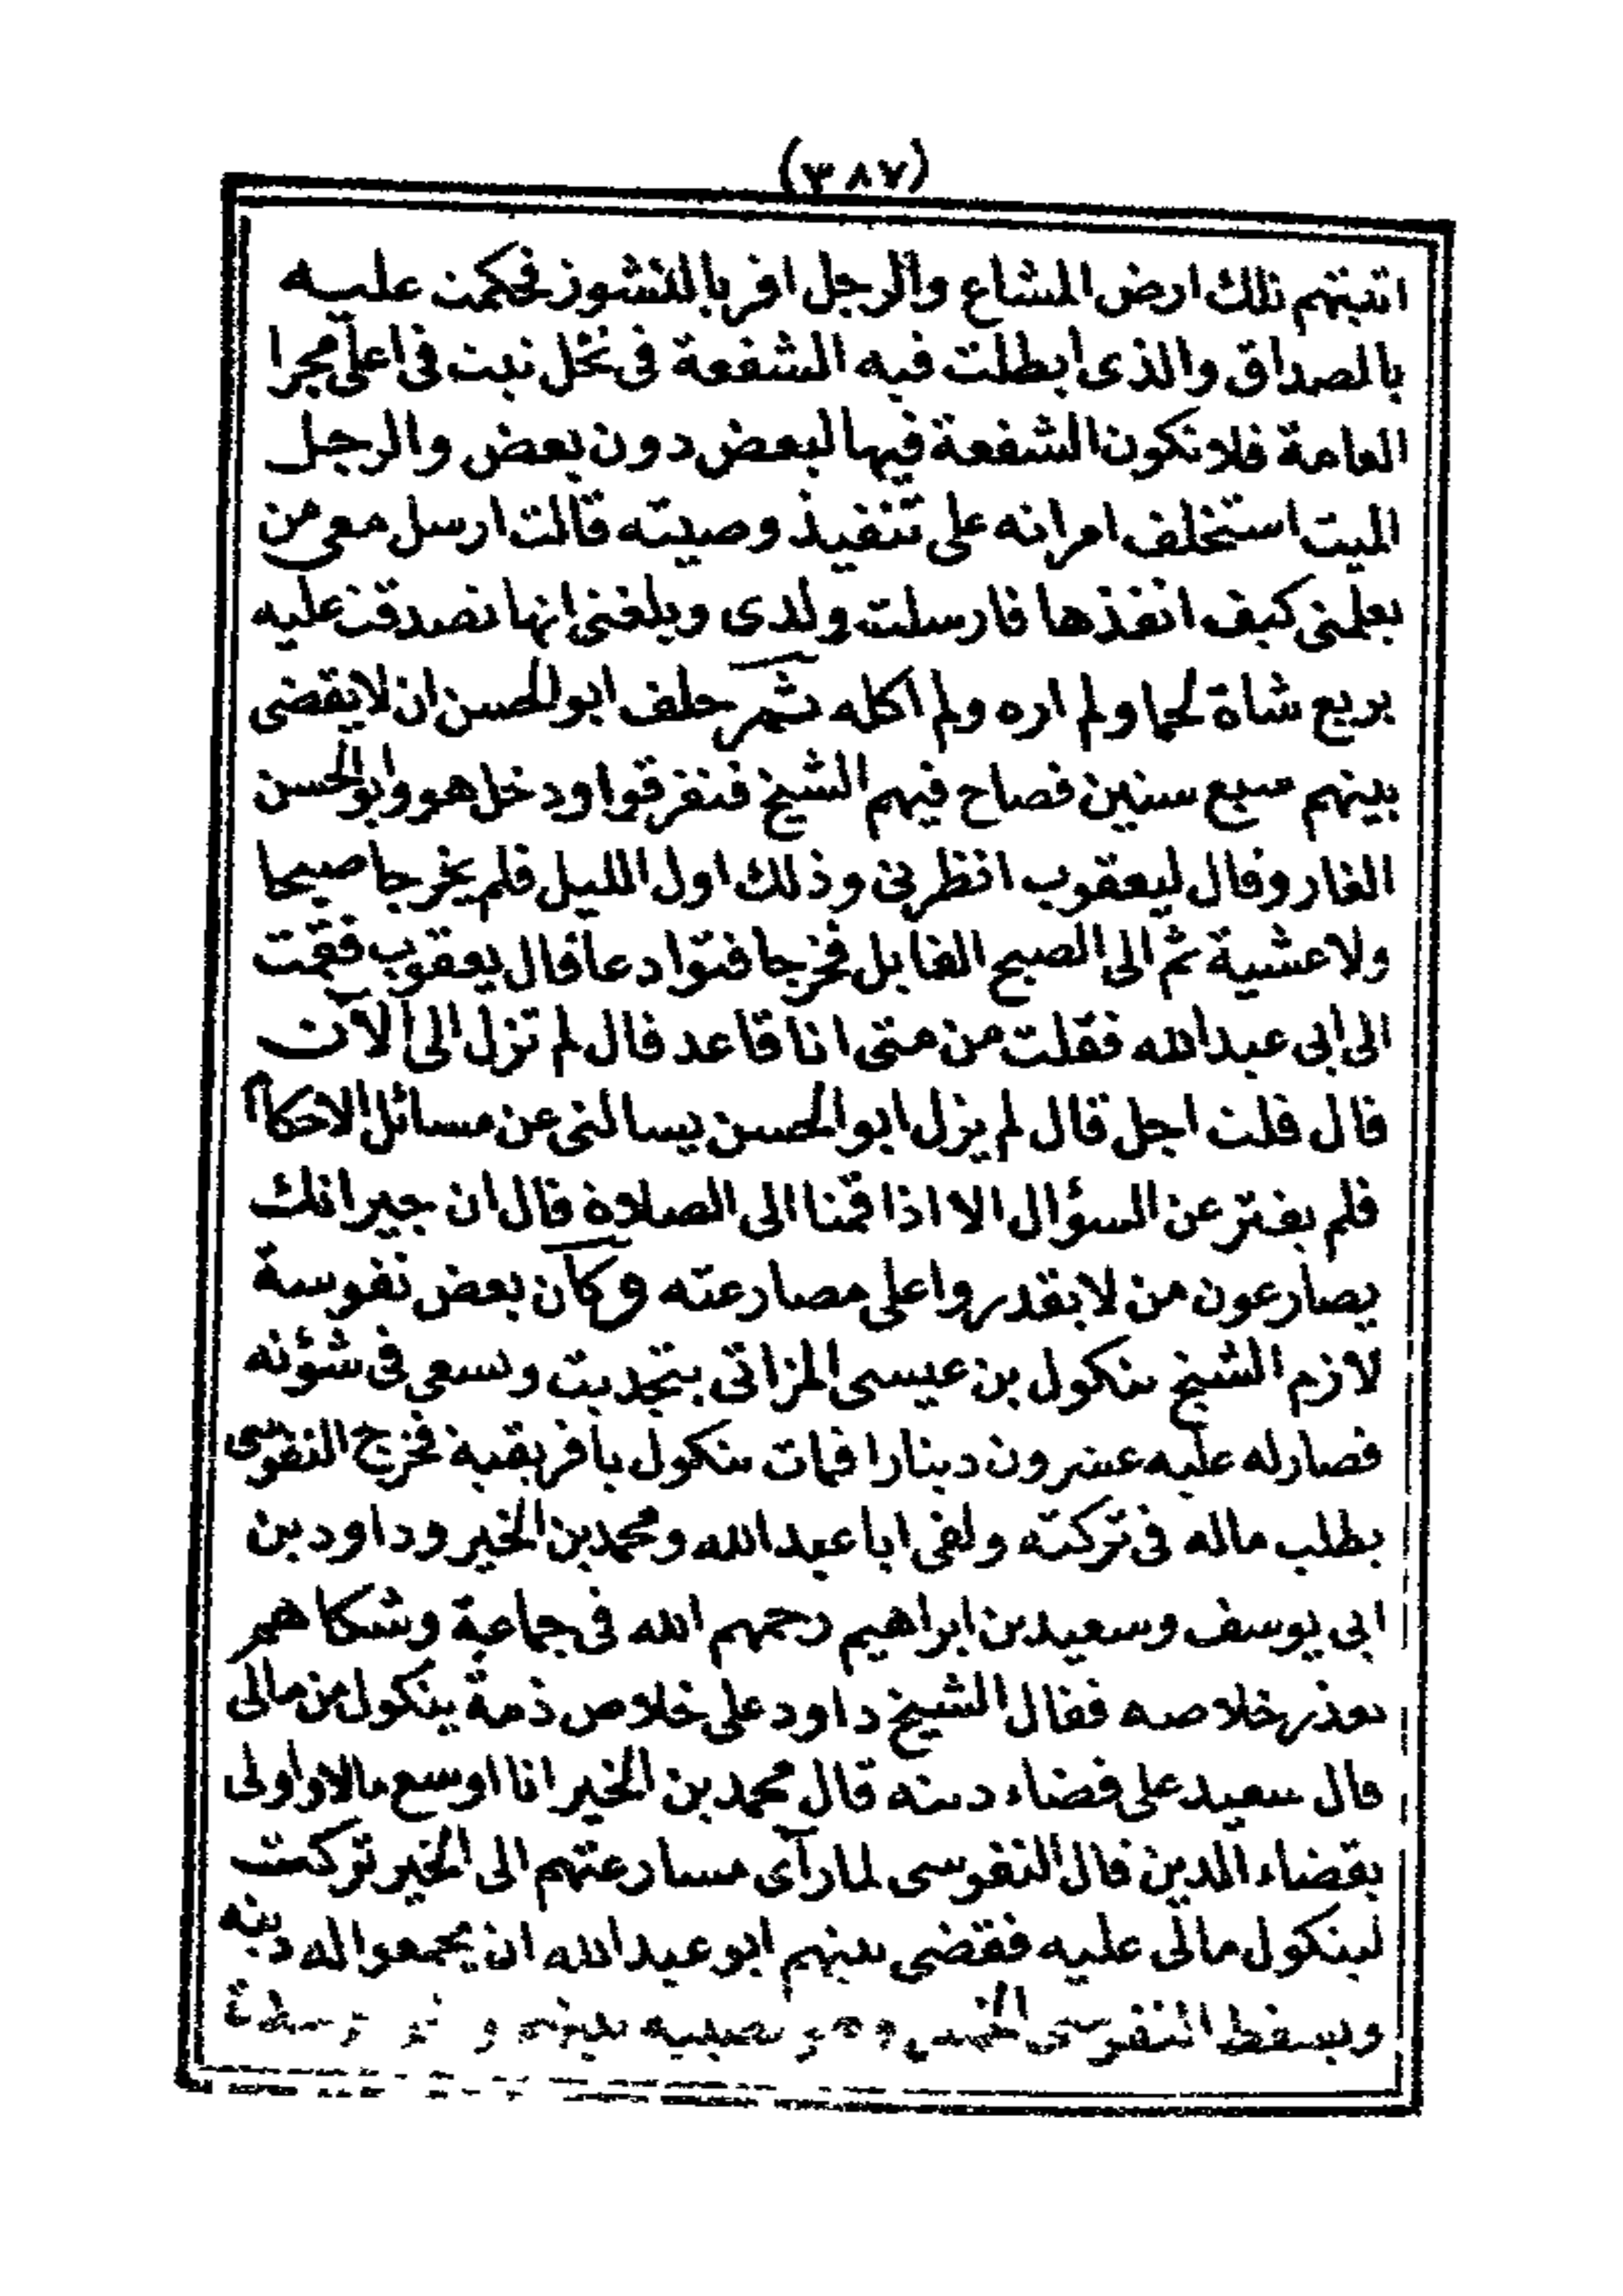 (٣٨٧)
اتيتهم تلك ارض المشاع والرجل اقر بالنشوز فحكمت عليه
بالصداق والذى ابطلت فيه الشفعة فى نخل نبت فى اعلى مجرا
العامة فلا تكون الشفعة فيها لبعض دون بعض والرجل
الميت استخلف امراته على تنفيذ وصيته قالت ارسل معى من
يعلمنى كيف انفذها فارسلت ولدى وبلغنى انها تصدقت عليه
بربع شاة لحما ولم اره ولم اكله ثم حلف ابو الحسن ان لا يقضى
بينهم سبع سنين فصاح فيهم الشيخ فتفرقوا ودخل هو وابو الحسن
الغار وقال ليعقوب انظرنى وذلك اول الليل فلم يخرجا صبيحا
ولا عشية ثم الى الصبح القابل فخرجا فتوادعا قال يعقوب فقمت
الى ابى عبد الله فقلت من متى انا قاعد قال لم تزل الى الآن
قال قلت اجل قال لم يزل ابو الحسن يسالنى عن مسائل الاحكام
فلم يفتر عن السؤال الا اذا قمنا الى الصلاة قال ان جيرانك
يصارعون من لا يقدروا على مصارعته وكان بعض نفوسة
لازم الشيخ ينكول بن عيسى المزاتى بتجديت وسعى فى شؤنه
فصار له عليه عشرون دينارا فمات ينكول بافريقية فخرج النفوسى
يطلب ماله فى تركته ولقى ابا عبد الله ومحمد بن الخير وداود بن
ابى يوسف وسعيد بن ابراهيم رحمهم الله فى جماعة وشكا هم
تعذر خلاصه فقال الشيخ داود على خلاص ذمة ينكول من مالى
قال سعيد على قضاء دينه قال محمد بن الخير انا اوسع مالا واولى
بقضاء الدين قال النفوسى لما رآى مسارعتهم الى الخير تركت
لينكول مالى عليه فقضى بينهم ابو عبد الله ان يجمعوا له دينه
ويسقط النفوسى الخمس وهو نصيبه